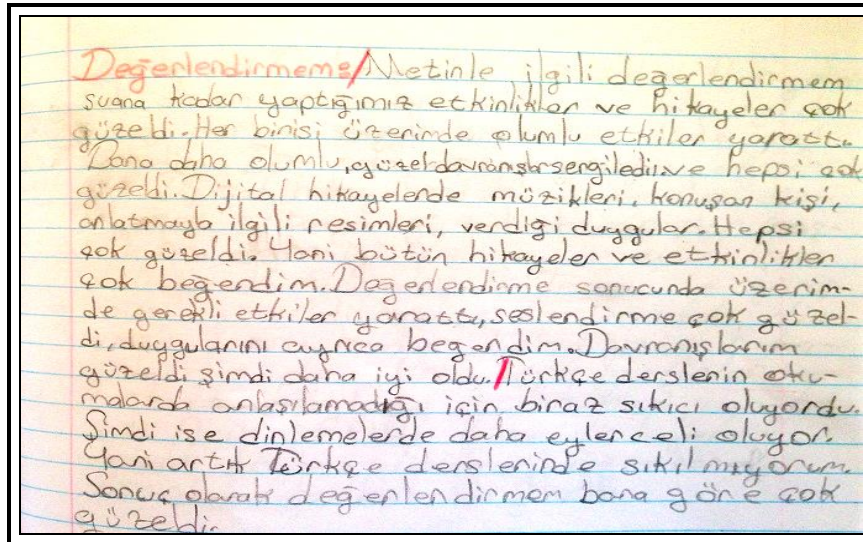 Değerlendirmem:/Metinle ilgili değerlendirmem
şuana kadar yaptığımız etkinlikler ve hikayeler çok
güzeldi. Her birisi üzerimde olumlu etkiler yarattı.
Bana daha olumlu, güzel davranışlar sergiledi. ve hepsi çok
güzeldi. Dijital hikayelerde müzikleri, konuşan kişi,
anlatmayla ilgili resimleri, verdiği duygular. Hepsi
çok güzeldi. Yani bütün hikayeler ve etkinlikler
çok beğendim. Değerlendirme sonucunda üzerim-
de gerekli etkiler yarattı, seslendirme çok güzel-
di, duygularını ayrıca beğendim. Davranışlarım
güzeldi şimdi daha iyi oldu./Türkçe derslerin oku-
malarda anlaşılamadığı için biraz sıkıcı oluyordu.
Şimdi ise dinlemelerde daha eylenceli oluyor.
Yani artık Türkçe derslerinde sıkılmıyorum.
Sonuç olarak değerlendirmem bana göre çok
güzeldi.